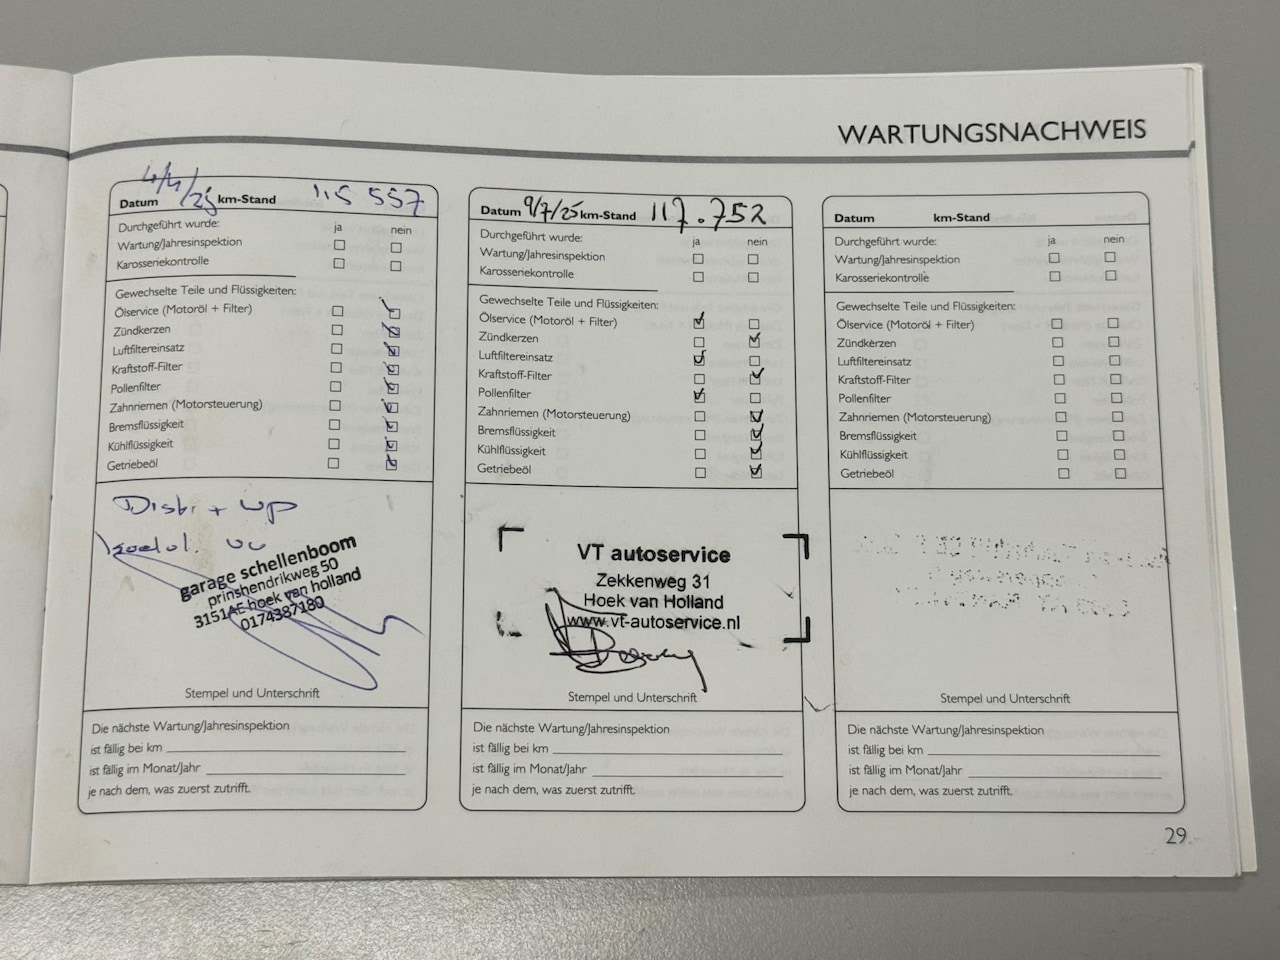 WARTUNGSNACHWEIS
Datum 4/4/25 km-Stand 115 557
Durchgeführt wurde: ja nein
Wartung/Jahresinspektion
Karosseriekontrolle
Gewechselte Teile und Flüssigkeiten:
Ölservice (Motoröl + Filter)
Zündkerzen
Luftfiltereinsatz
Kraftstoff-Filter
Pollenfilter
Zahnriemen (Motorsteuerung)
Bremsflüssigkeit
Kühlflüssigkeit
Getriebeöl
Distr + wp
garage schellenboom
prinshendrikweg 50
3151AE hoek van holland
0174387180
Stempel und Unterschrift
Die nächste Wartung/Jahresinspektion
ist fällig bei km
ist fällig im Monat/Jahr
je nach dem, was zuerst zutrifft.
Datum 9/7/25 km-Stand 117.752
Durchgeführt wurde: ja nein
Wartung/Jahresinspektion
Karosseriekontrolle
Gewechselte Teile und Flüssigkeiten:
Ölservice (Motoröl + Filter)
Zündkerzen
Luftfiltereinsatz
Kraftstoff-Filter
Pollenfilter
Zahnriemen (Motorsteuerung)
Bremsflüssigkeit
Kühlflüssigkeit
Getriebeöl
VT autoservice
Zekkenweg 31
Hoek van Holland
www.vt-autoservice.nl
Stempel und Unterschrift
Die nächste Wartung/Jahresinspektion
ist fällig bei km
ist fällig im Monat/Jahr
je nach dem, was zuerst zutrifft.
Datum km-Stand
Durchgeführt wurde: ja nein
Wartung/Jahresinspektion
Karosseriekontrolle
Gewechselte Teile und Flüssigkeiten:
Ölservice (Motoröl + Filter)
Zündkerzen
Luftfiltereinsatz
Kraftstoff-Filter
Pollenfilter
Zahnriemen (Motorsteuerung)
Bremsflüssigkeit
Kühlflüssigkeit
Getriebeöl
Stempel und Unterschrift
Die nächste Wartung/Jahresinspektion
ist fällig bei km
ist fällig im Monat/Jahr
je nach dem, was zuerst zutrifft.
29